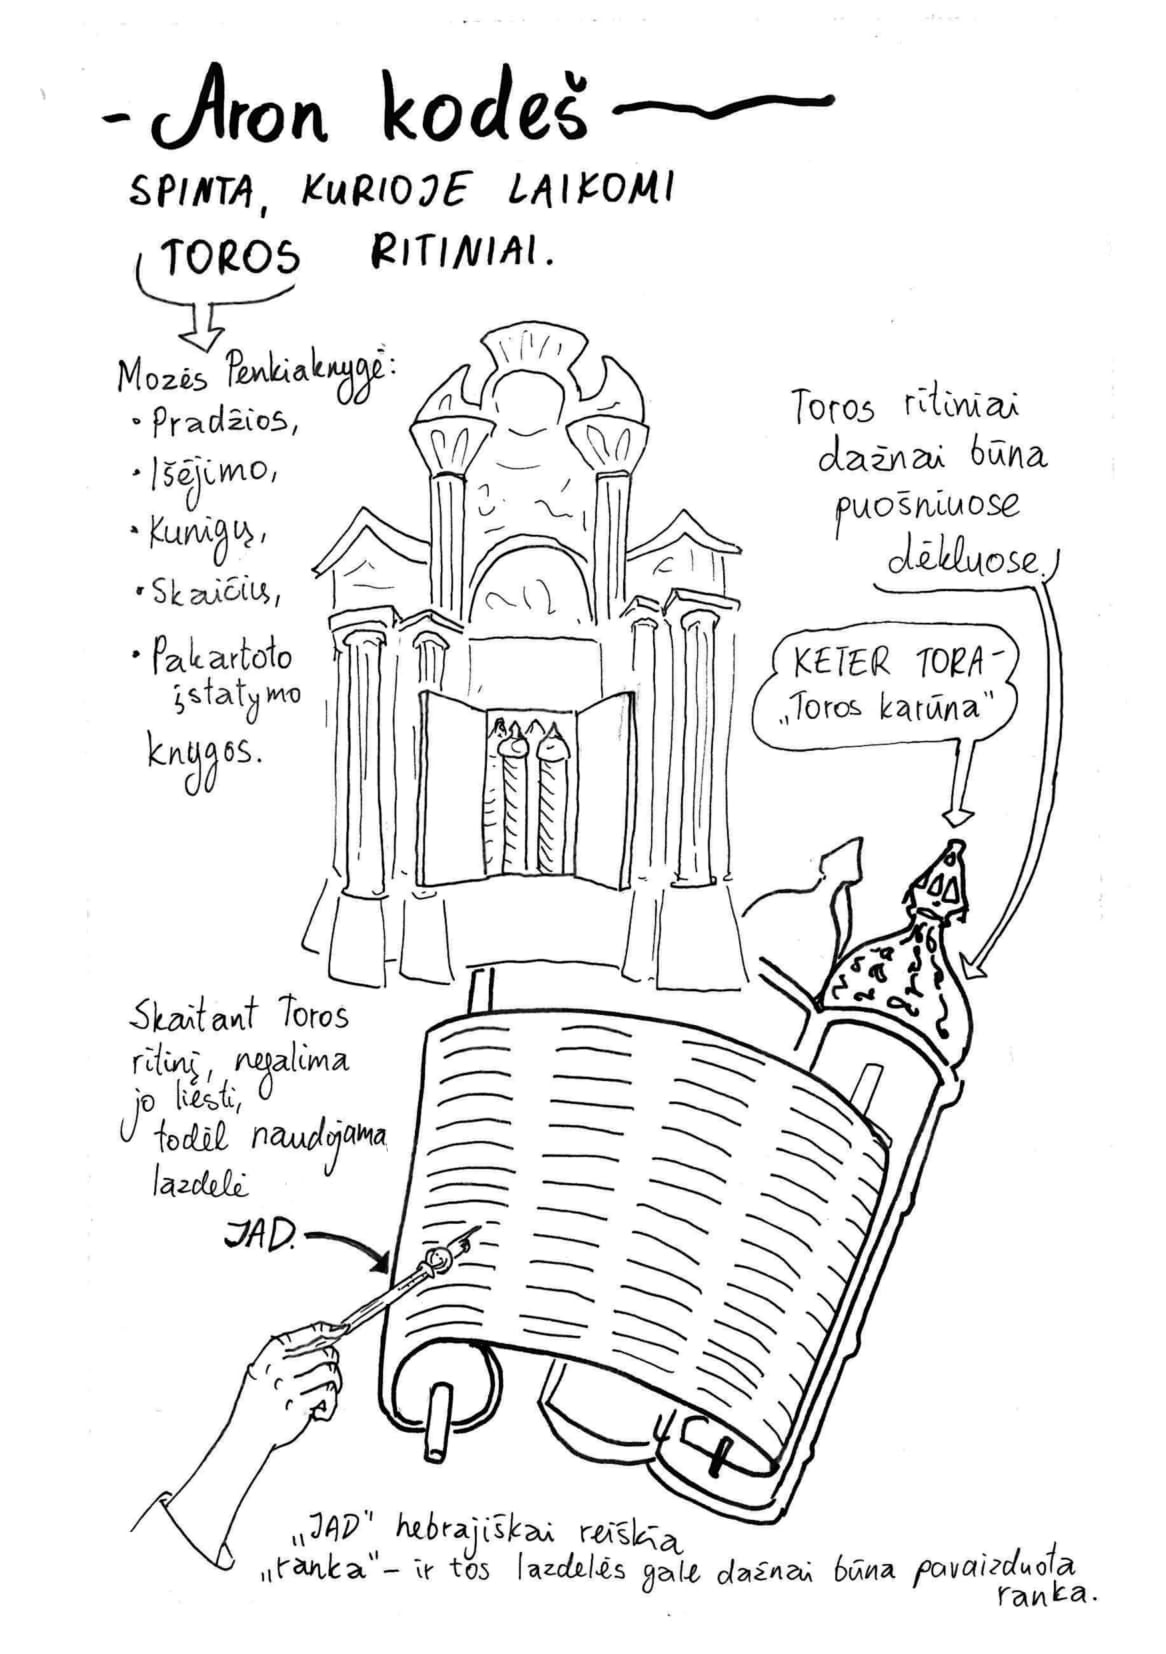 - Aron kodeš
SPINTA, KURIOJE LAIKOMI
TOROS RITINIAI.
Mozės Penkiaknygė:
• Pradžios,
• Išėjimo,
• Kunigų,
• Skaičių,
• Pakartoto
įstatymo
knygos.
Toros ritiniai
dažnai būna
puošniuose
dėkluose.
KETER TORA -
„Toros karūna"
Skaitant Toros
ritinį, negalima
jo liesti,
todėl naudojama
lazdelė
JAD.
„JAD" hebrajiškai reiškia
„ranka" - ir tos lazdelės gale dažnai būna pavaizduota
ranka.